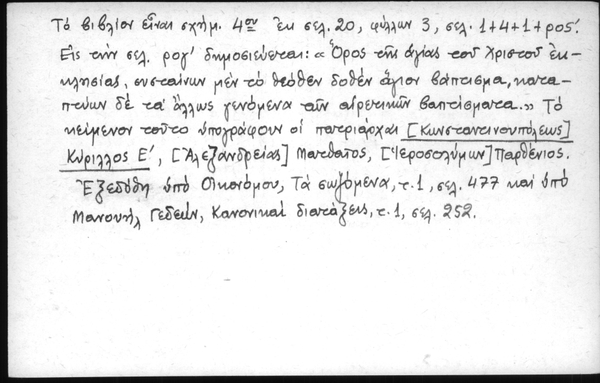 Τὸ βιβλίον εἶναι σχήμ. 4ον ἐκ σελ. 20, φύλλων 3, σελ. 1+4+1+ρος΄.
Εἰς τὴν σελ. ρογ΄ δημοσιεύεται: «Ὅρος τῆς ἁγίας τοῦ Χριστοῦ ἐκ-
κλησίας, συσταίνων μὲν τὸ θεόθεν δοθὲν ἅγιον βάπτισμα, κατα-
πτύων δὲ τὰ ἄλλως γενόμενα τῶν αἱρετικῶν βαπτίσματα.» Τὸ
κείμενον τοῦτο ὑπογράφουν οἱ πατριάρχαι [Κωνσταντινουπόλεως]
Κύριλλος Ε΄, [Ἀλεξανδρείας] Ματθαῖος, [Ἱεροσολύμων] Παρθένιος.
Ἐξεδόθη ὑπὸ Οἰκονόμου, Τὰ σωζόμενα, τ. 1, σελ. 477 καὶ ὑπὸ
Μανουὴλ Γεδεών, Κανονικαὶ διατάξεις, τ. 1, σελ. 252.